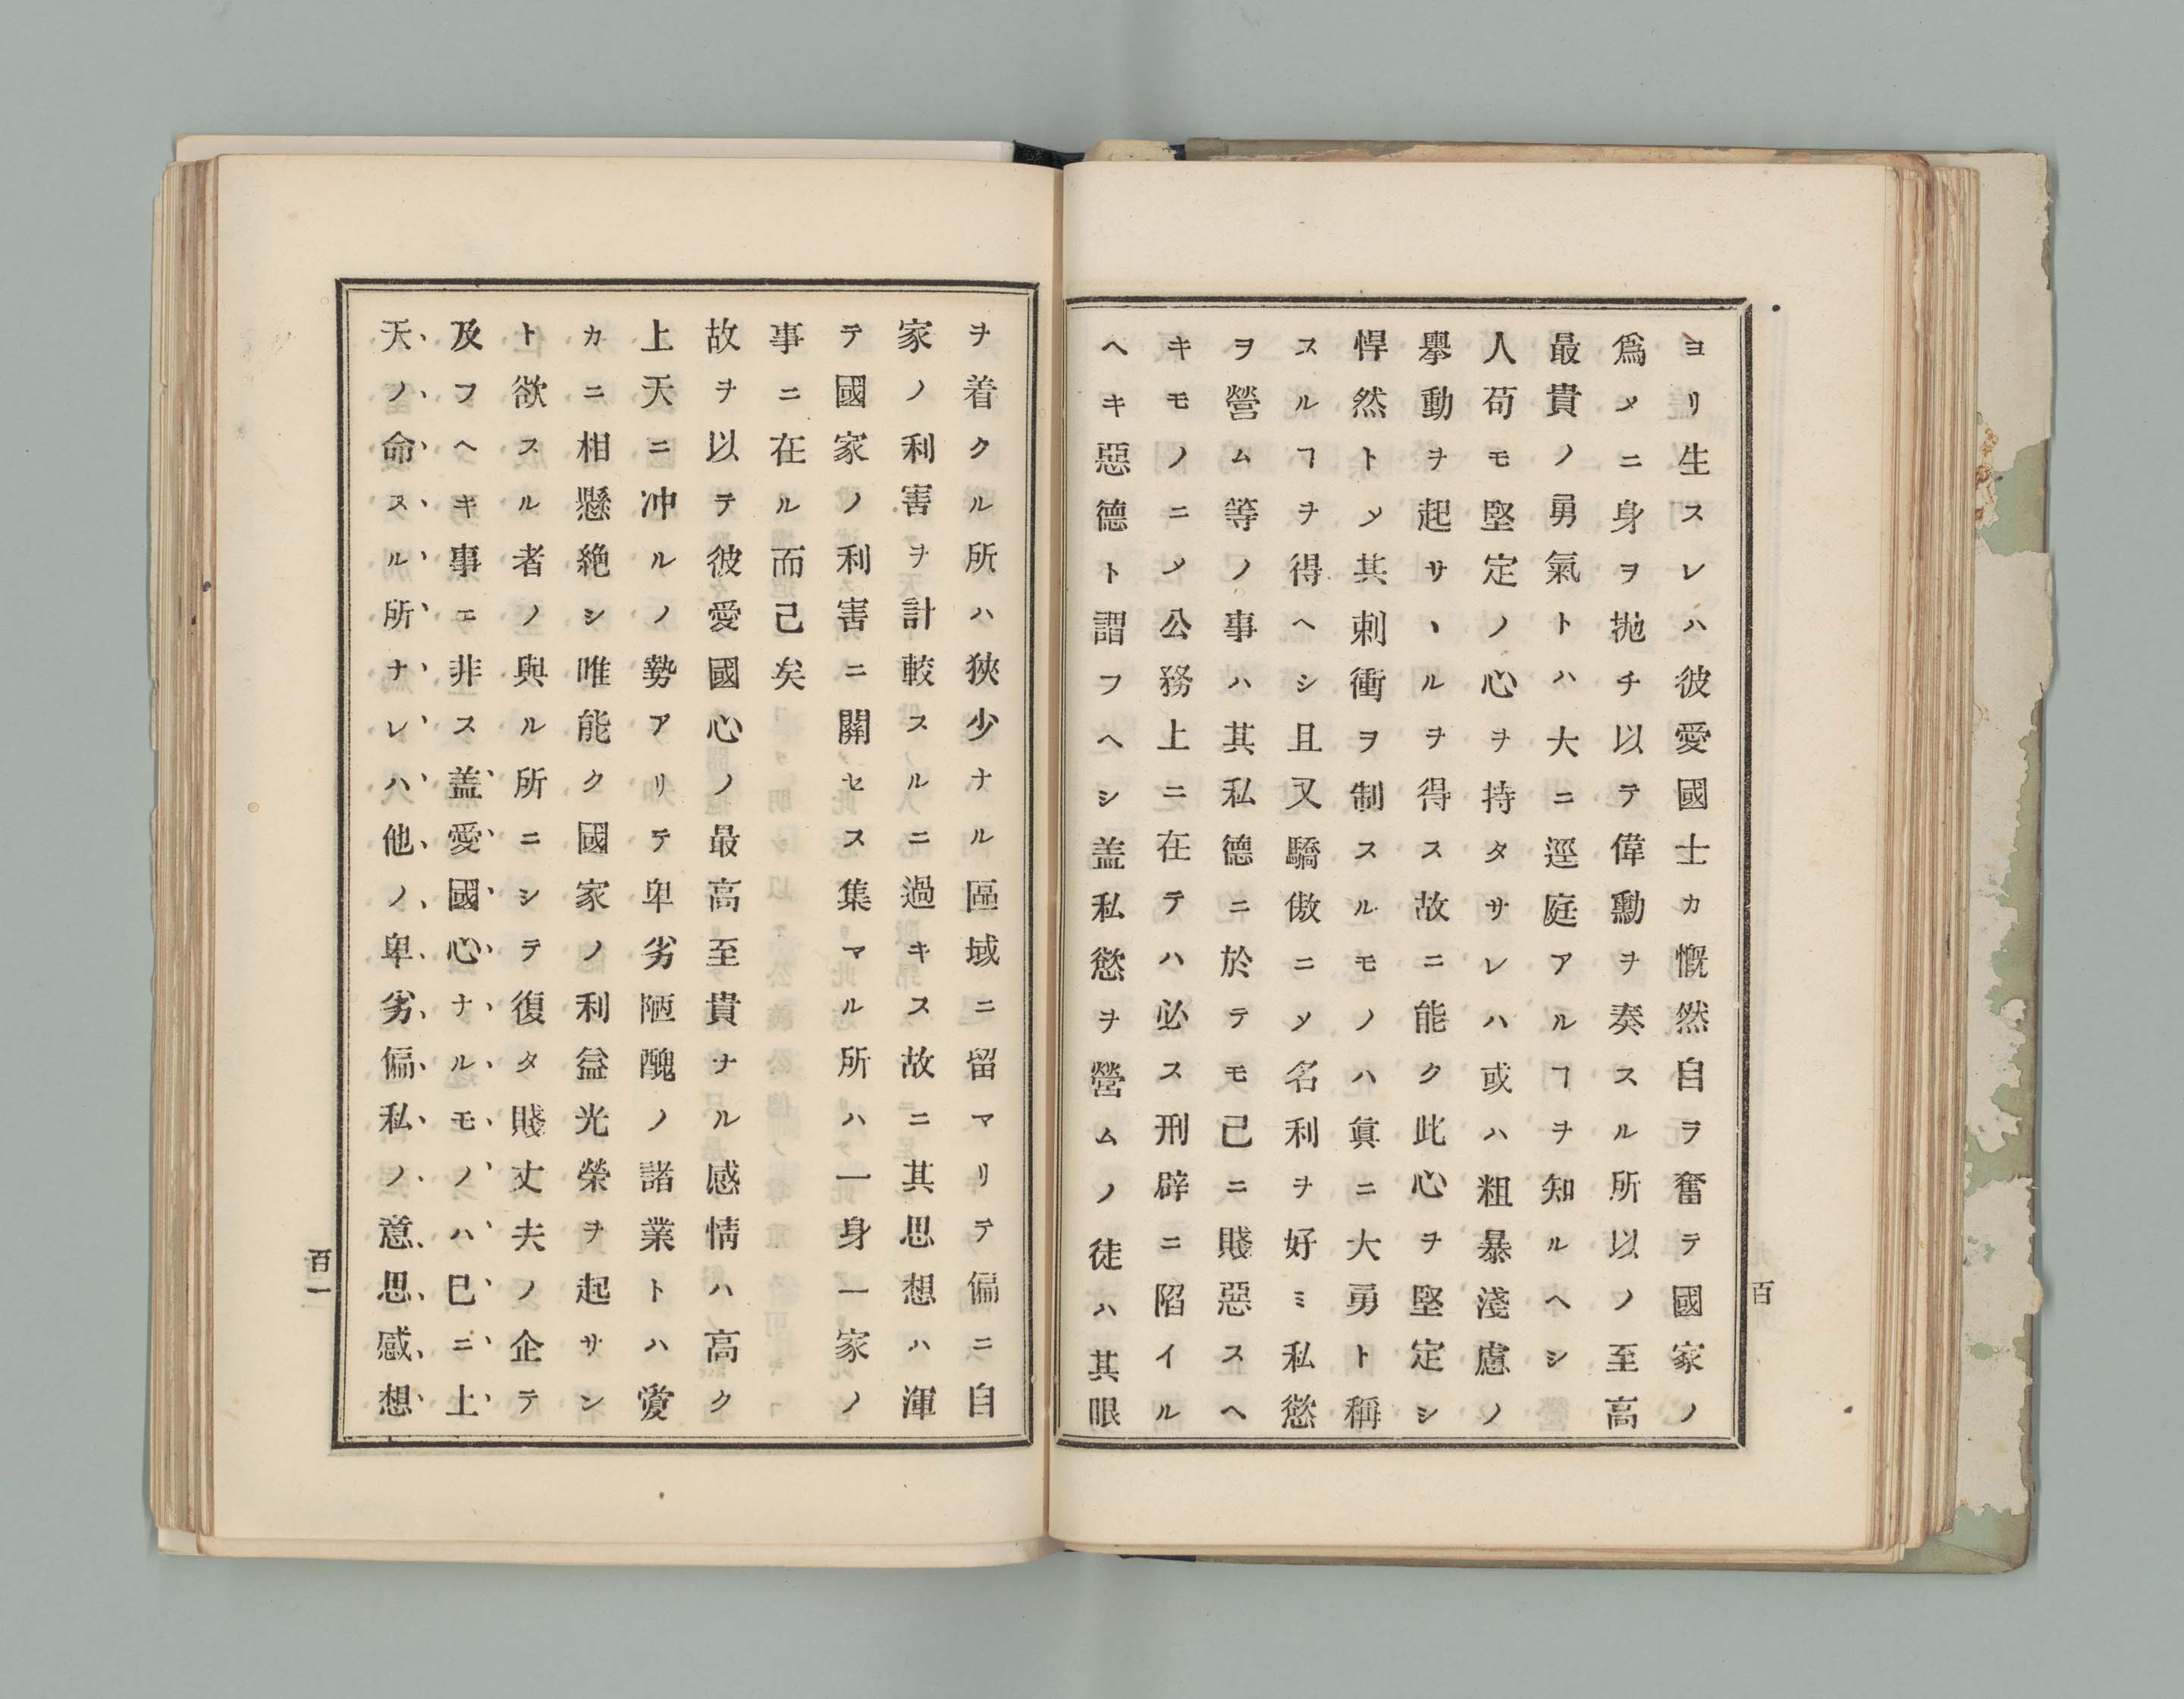 ヨリ生スレハ彼愛國士カ慨然自ヲ奮テ國家ノ
爲メニ身ヲ抛チ以テ偉勳ヲ奏スル所以ノ至高
最貴ノ勇氣トハ大ニ逕庭アルヿヲ知ルヘシ
人苟モ堅定ノ心ヲ持タサレハ或ハ粗暴淺慮ノ
擧動ヲ起サヽルヲ得ス故ニ能ク此心ヲ堅定シ
悍然トメ其刺衝ヲ制スルモノハ眞ニ大勇ト稱
スルヿヲ得ヘシ且又驕傲ニメ名利ヲ好ミ私慾
ヲ營ム等ノ事ハ其私德ニ於テモ已ニ賤惡スヘ
キモノニメ公務上ニ在テハ必ス刑辟ニ陷イル
ヘキ惡德ト謂フヘシ盖私慾ヲ營ムノ徒ハ其眼
百
ヲ着クル所ハ狹少ナル區域ニ留マリテ偏ニ自
家ノ利害ヲ計較スルニ過キス故ニ其思想ハ渾
テ國家ノ利害ニ關セス集マル所ハ一身一家ノ
事ニ在ル而己矣
故ヲ以テ彼愛國心ノ最高至貴ナル感情ハ高ク
上天ニ冲ルノ勢アリテ卑劣陋醜ノ諸業トハ霄
カニ相懸絶シ唯能ク國家ノ利益光榮ヲ起サン
ト欲スル者ノ與ル所ニシテ復タ賤丈夫ノ企テ
及フヘキ事ニ非ス盖愛國心ナルモノハ已ニ上
天ノ命スル所ナレハ他ノ卑劣偏私ノ意思感想
百一